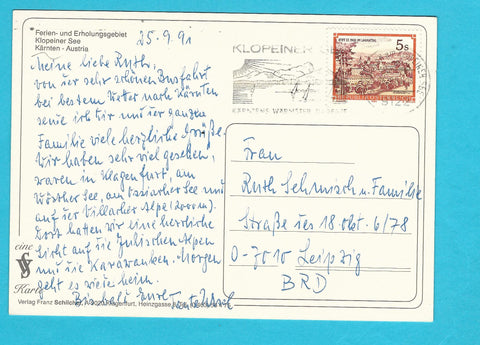 Ferien- und Erholungsgebiet
Klopeiner See
Kärnten - Austria
25.9.91
Meine liebe Ruth,
von der sehr schönen Busfahrt
bei bestem Wetter nach Kärnten
sende ich Dir und der ganzen
Familie viele herzliche Grüße.
Wir haben sehr viel gesehen,
waren in Klagenfurt, am
Wörther See, am Ossiacher See und
auf der Villacher Alpe (2000 m).
Dort hatten wir eine herrliche
Sicht auf die Julischen Alpen
und die Karawanken. Morgen
geht es wieder heim.
Bis bald Eure
eine
VS
Karte
Verlag Franz Schilcher, A-9020 Klagenfurt, Heinzgasse
KLOPEINER SEE
KÄRNTENS WÄRMSTER BADESEE
5s
REPUBLIK ÖSTERREICH
9122
Frau
Ruth Schmisch u. Familie
Straße des 18. Okt. 6/78
O-7010 Leipzig
BRD